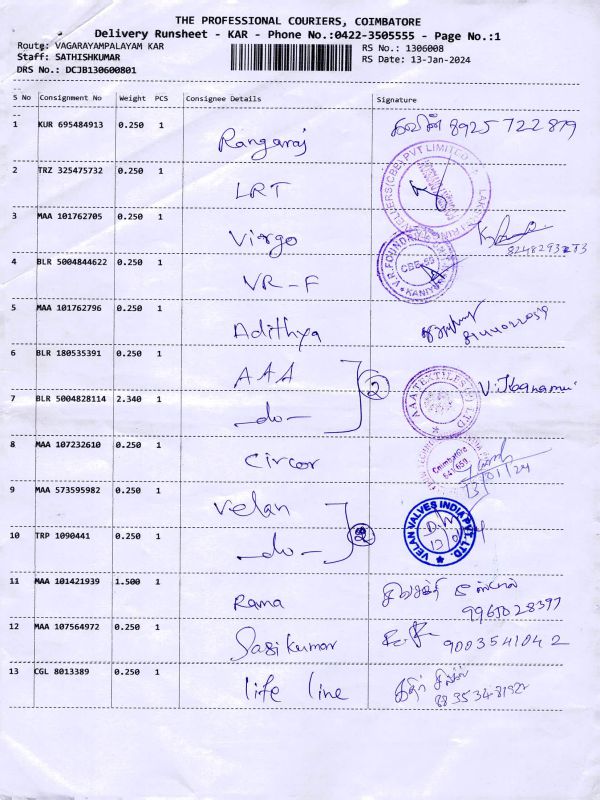 THE PROFESSIONAL COURIERS, COIMBATORE
Delivery Runsheet - KAR - Phone No.:0422-3505555 - Page No.:1
Routg: VAGARAYAMPALAYAM KAR
RS No.: 1306008
Staff: SATHISHKUMAR
RS Date: 13-Jan-2024
DRS No.: DCJB130600801
S No Consignment No Weight PCS Consignee Details Signature
1 KUR 695484913 0.250 1 Rangaraj 8925 722 879
2 TRZ 325475732 0.250 1 LRT
3 MAA 101762705 0.250 1 Virgo
4 BLR 5004844622 0.250 1 VR-F
CBE-65
5 MAA 101762796 0.250 1 Adithya
6 BLR 180535391 0.250 1 AAA
AAA TEXTILES (P) LTD
7 BLR 5004828114 2.340 1 -do- 2
8 MAA 107232610 0.250 1 Circor
Coimbatore
13/01/24
9 MAA 573595982 0.250 1 Velan
VELAN VALVES INDIA PVT. LTD.
10 TRP 1090441 0.250 1 -do- 2
11 MAA 101421939 1.500 1 Rama
12 MAA 107564972 0.250 1 Sasikumar 9003541042
13 CGL 8013389 0.250 1 life line